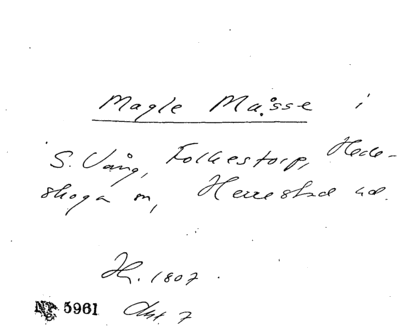 Magle Måsse i
S. Vång, Folkestorp, Hede-
skoga m, Herrestad ud.
H. 1807.
No 5961 Akt. 7